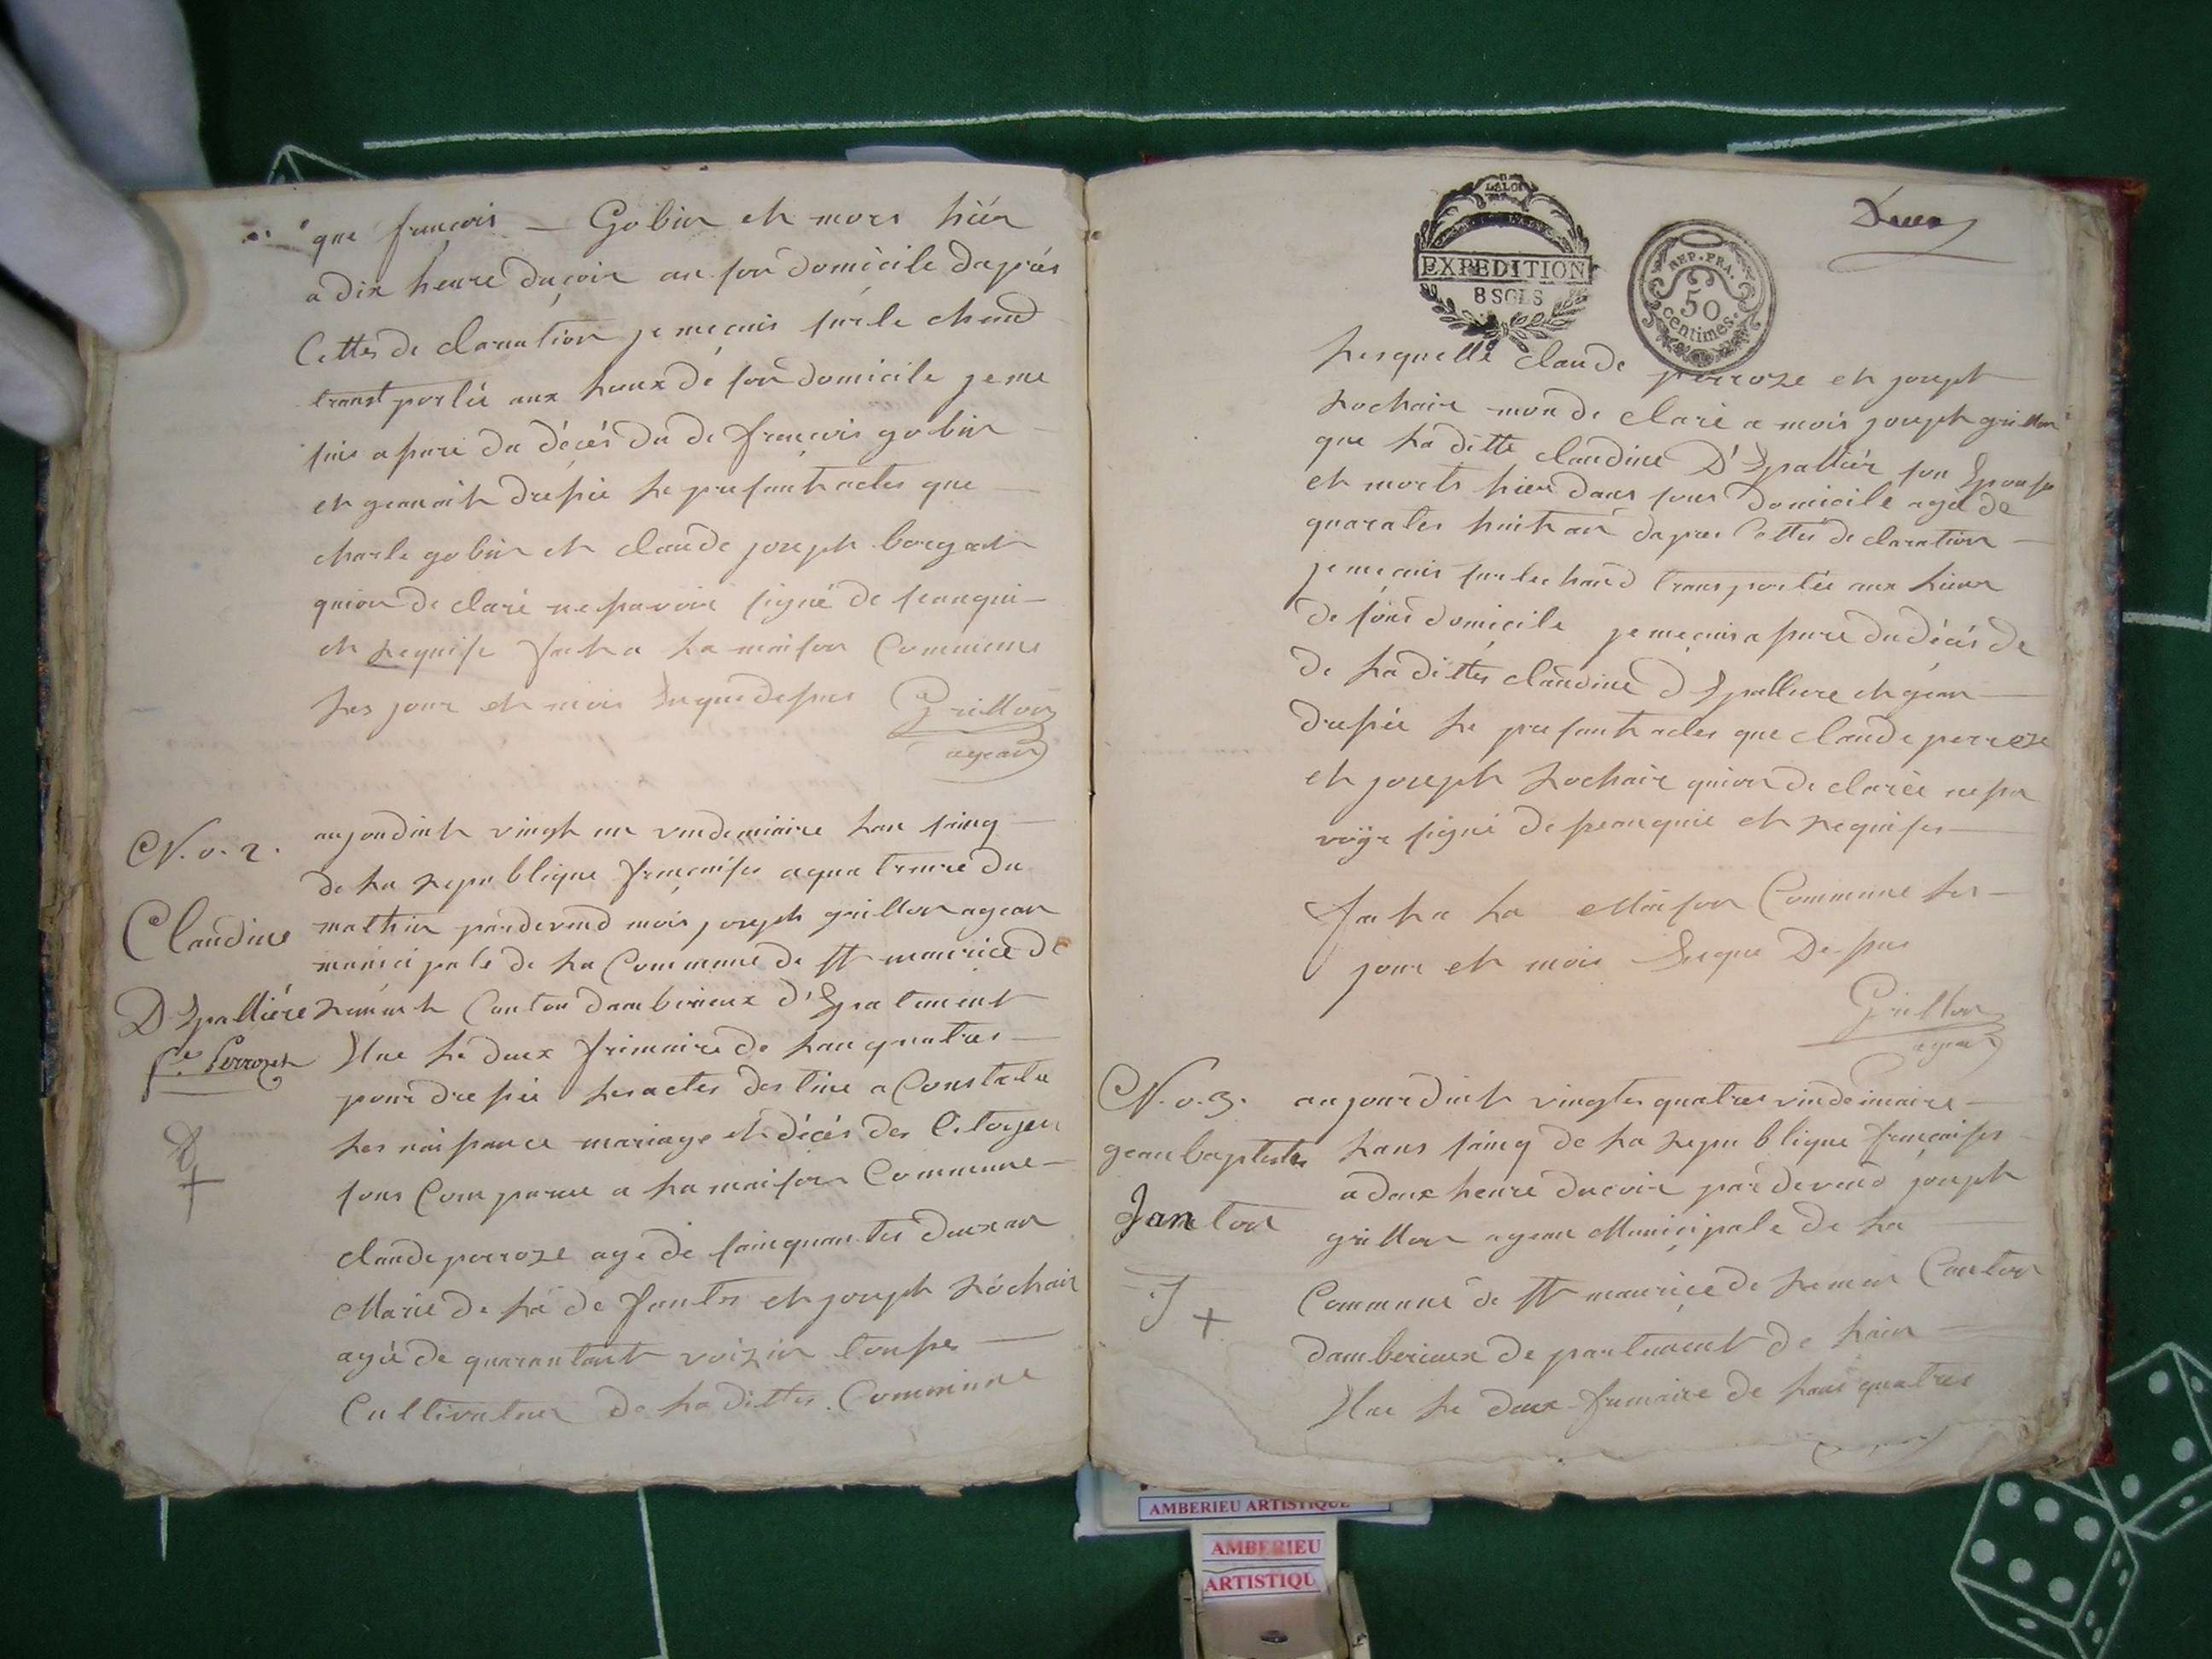 que françois — Gobin et mors hièr
a dix heure du çoir an son domicile dapràs
Cettes de claration je me çuis sur le chand
transt portéé aux Lieux de son domicile je me
suis a suré du décés du de françois gobin
et geanait dressée Le presant actes que
charle gobin et claude joseph borgat
quion de claré ne savoir signé de seanqui
et Requise fait a La maison Commune
Les jour et mois Suque dessus Grillon
agean
N.o.2.
Claudine
D'Epalliére
fe. Perrozet
aujourduit vingt un vendemiaire Lan sainq
de La Republique françaises a quatreure du
mathin pardevend mois joseph grillon agean
municipale de La Commune de St mauriçe de
Rémant Canton dambérieux d'Epatement
Une Le deux frimaire de Lan quatres
pour dressée Les actes destiné a Constaté
Les naissance mariage et décés des Citoyen
sons Comparue a La maison Commune
claude perroze agé de sainquantes deux an
Marie de La de fantes et joseph Rochair
agée de quarantant voizin tousses
Cultivateur de La dittes Commune
LA LOI
EXPEDITION
8 SOLS
REP. FRA.
50
centimes.
Deux
Lesquelle claude perroze et joseph
Rochair mon de claré a mois joseph grillon
que La ditte claudine D'Epalliér son Epouse
et morts hièr dans sons domicile agé de
quarates huit an dapres Cettes de claration
je me çuis sur les haud transportée aux Lieux
de sons domicile je me çuis a sure du décés de
de La dittes claudine d'Epalliere et géan
dressée Le presant actes que claude perroze
et joseph Rochair quion de clarée ne sa
voÿr signé de seanquie et Requises
fait a La Maison Commune Les
jour et mois Suque Dessus
Grillon
agean
N.o.3.
gean baptistes
Janton
aujourduit vingtes quatres vindemiaire
Lans sainq de La Republique françaises
a deux heure du çoir par devend joseph
grillon agean Municipale de La
Commune de St mauriçe de Remen Canton
damberieux de partement de Lain
Une Le deux frimaire de Lans quatres
AMBERIEU ARTISTIQUE
AMBERIEU
ARTISTIQU